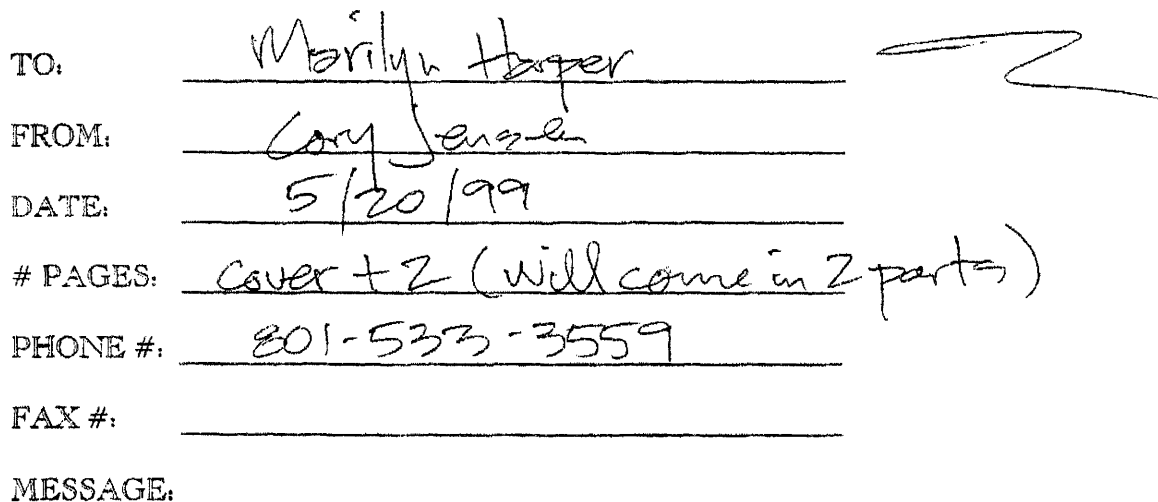 TO: Marilyn Harper
FROM: Cory Jensen
DATE: 5/20/99
# PAGES: cover + 2 (will come in 2 parts)
PHONE #: 801-533-3559
FAX #:
MESSAGE: